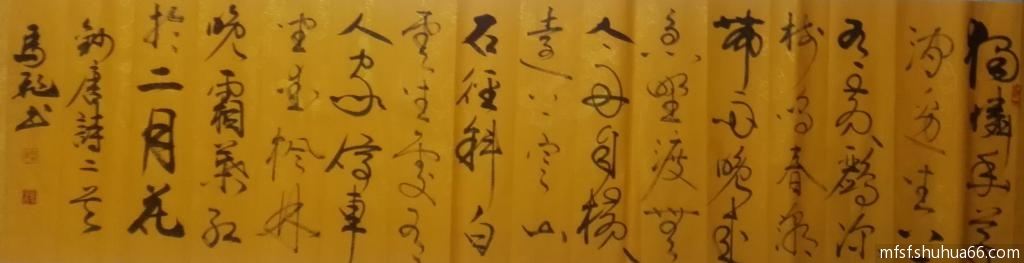 獨憐幽草
澗邊生上
有黃鸝深
樹鳴春潮
帶雨晚來
急野渡無
人舟自横
遠上寒山
石徑斜白
雲生處有
人家停車
坐愛楓林
晚霜葉紅
於二月花
唐詩二首
馬书
mfsf.shuhua66.com